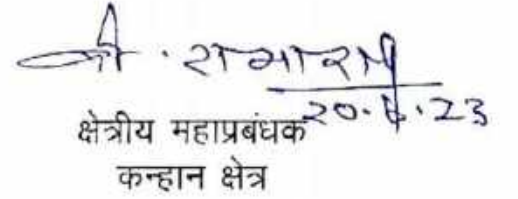 20.6.23
क्षेत्रीय महाप्रबंधक
कन्हान क्षेत्र